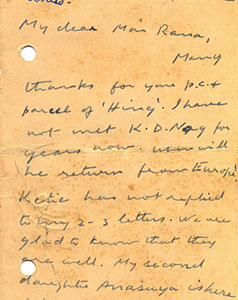 My dear Miss Rana,
Many
thanks for your p.c. &
parcel of 'Hing'. I have
not met K. D. Nag for
years now. When will
he return from Europe?
Ketie has not replied
to my 2-3 letters. We are
glad to know that they
are well. My second
daughter Anasuya is here